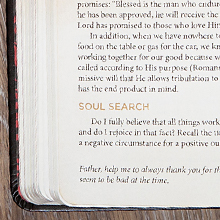 promises: "Blessed is the man who endur
he has been approved, he will receive the
Lord has promised to those who love Him
In addition, when we have nowhere t
food on the table or gas for the car, we kn
working together for our good because w
called according to His purpose (Romans
missive will that He allows tribulation to
has the end product in mind.
SOUL SEARCH
Do I fully believe that all things work
and do I rejoice in that fact? Recall the ti
a negative circumstance for a positive ou
Father, help me to always thank you for th
seem to be bad at the time.